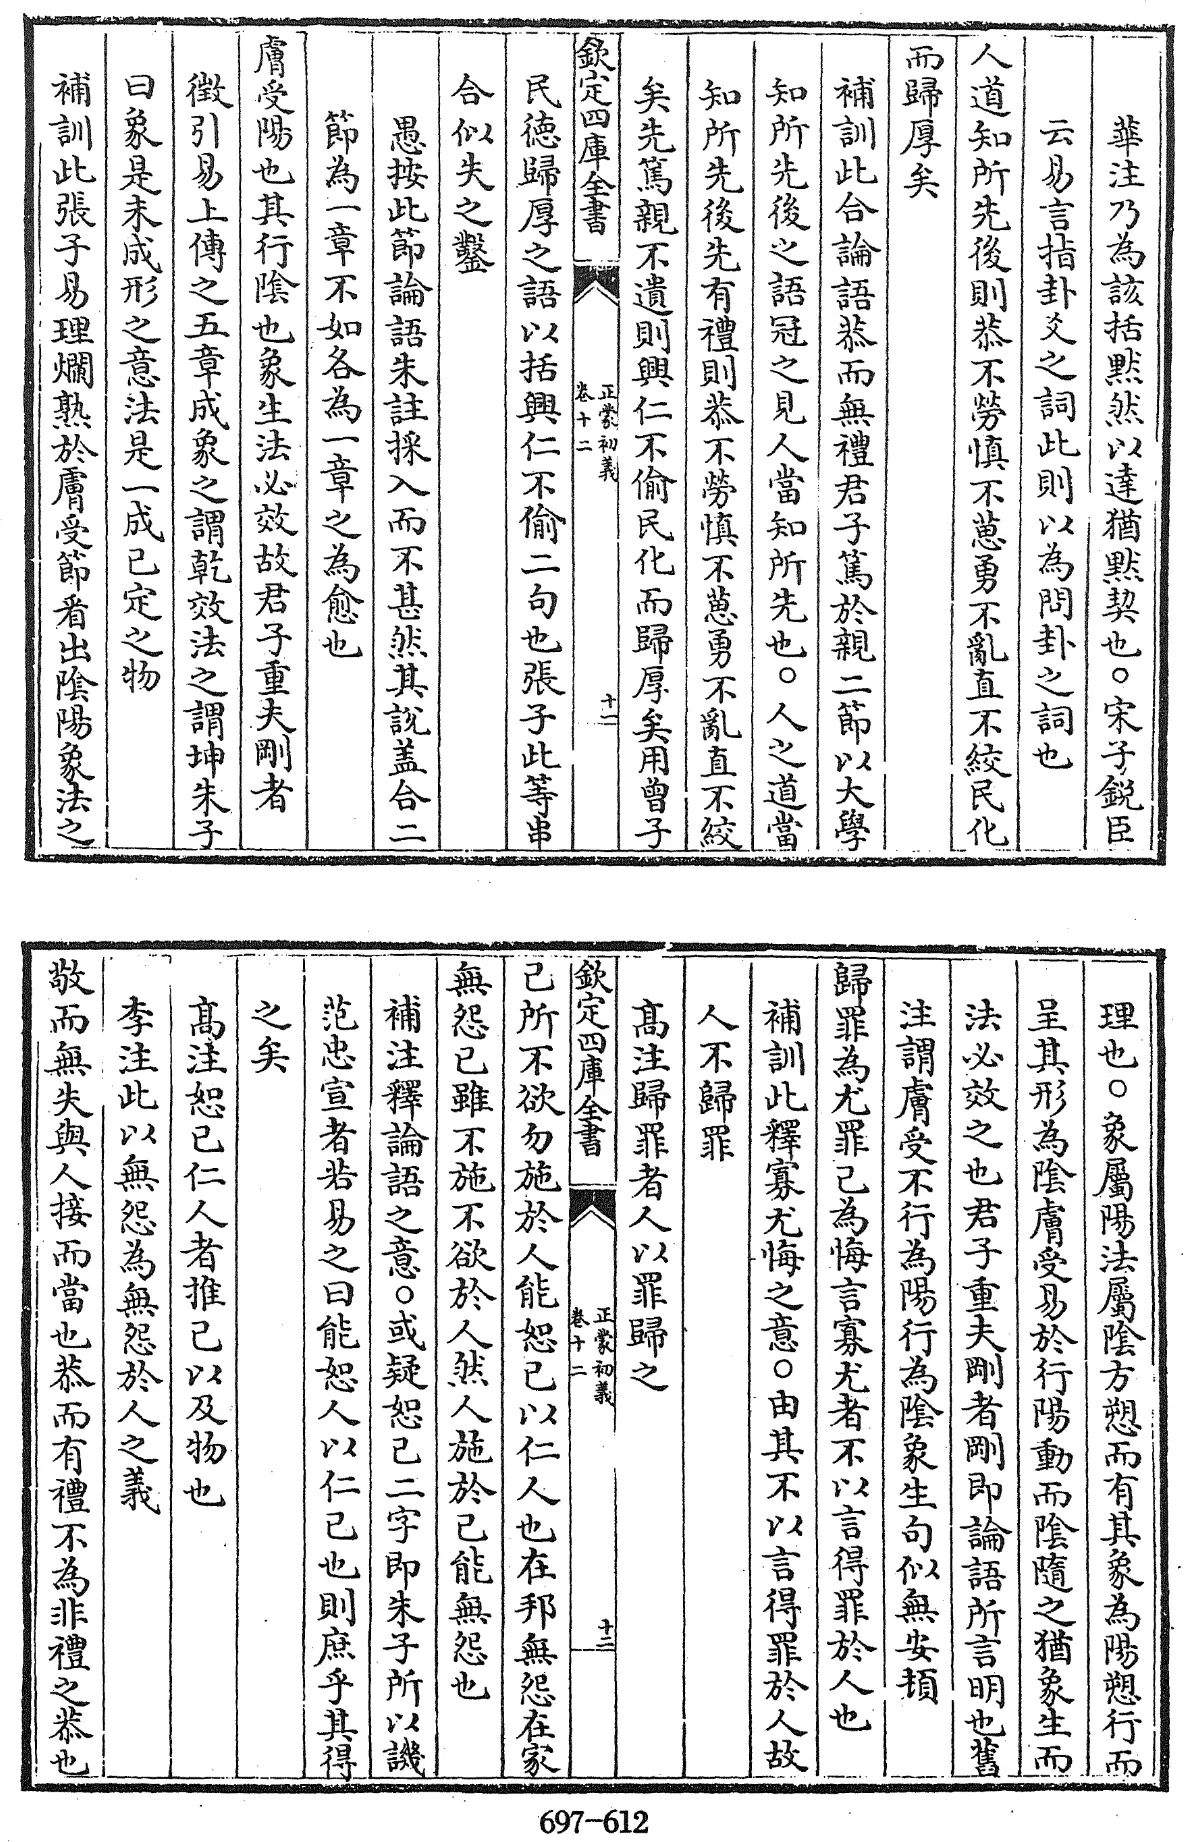 華注乃為該括黙然以達猶黙契也○宋子鋭臣
云易言指卦爻之詞此則以為問卦之詞也
人道知所先後則恭不勞慎不葸勇不亂直不絞民化
而歸厚矣
補訓此合論語恭而無禮君子篤於親二節以大學
知所先後之語冠之見人當知所先也○人之道當
知所先後先有禮則恭不勞慎不葸勇不亂直不絞
矣先篤親不遺則興仁不偷民化而歸厚矣用曾子
欽定四庫全書
正蒙初義
卷十二
十一
民德歸厚之語以括興仁不偷二句也張子此等串
合似失之鑿
愚按此節論語朱註採入而不甚然其說蓋合二
節為一章不如各為一章之為愈也
膚受陽也其行陰也象生法必效故君子重夫剛者
徵引易上傳之五章成象之謂乾效法之謂坤朱子
曰象是未成形之意法是一成已定之物
補訓此張子易理爛熟於膚受節看出陰陽象法之
理也○象屬陽法屬陰方愬而有其象為陽愬行而
呈其形為陰膚受易於行陽動而陰隨之猶象生而
法必效之也君子重夫剛者剛即論語所言明也舊
注謂膚受不行為陽行為陰象生句似無安頓
歸罪為尤罪己為悔言寡尤者不以言得罪於人也
補訓此釋寡尤悔之意○由其不以言得罪於人故
人不歸罪
髙注歸罪者人以罪歸之
欽定四庫全書
正蒙初義
卷十二
十二
己所不欲勿施於人能恕己以仁人也在邦無怨在家
無怨已雖不施不欲於人然人施於己能無怨也
補注釋論語之意○或疑恕己二字即朱子所以譏
范忠宣者若易之曰能恕人以仁己也則庶乎其得
之矣
髙注恕己仁人者推己以及物也
李注此以無怨為無怨於人之義
敬而無失與人接而當也恭而有禮不為非禮之恭也
697-612